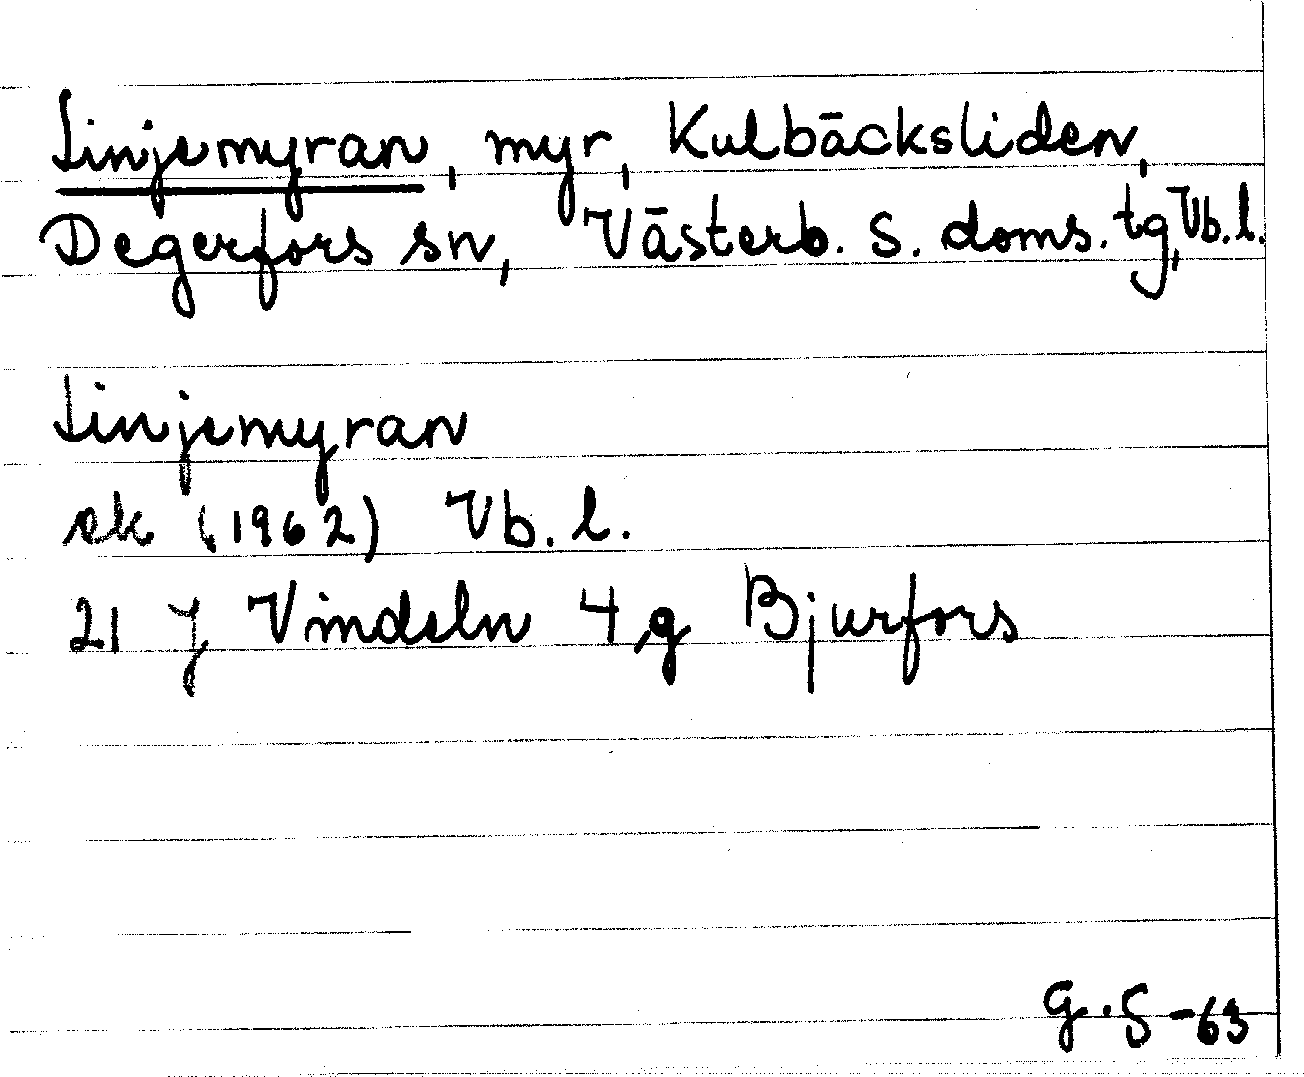 Linjemyran, myr, Kulbäcksliden,
Degerfors sn, Västerb. s. doms. tg, Vb. l.
Linjemyran
ek (1962) Vb. l.
21 J Vindeln 4 g Bjurfors
G. S -63